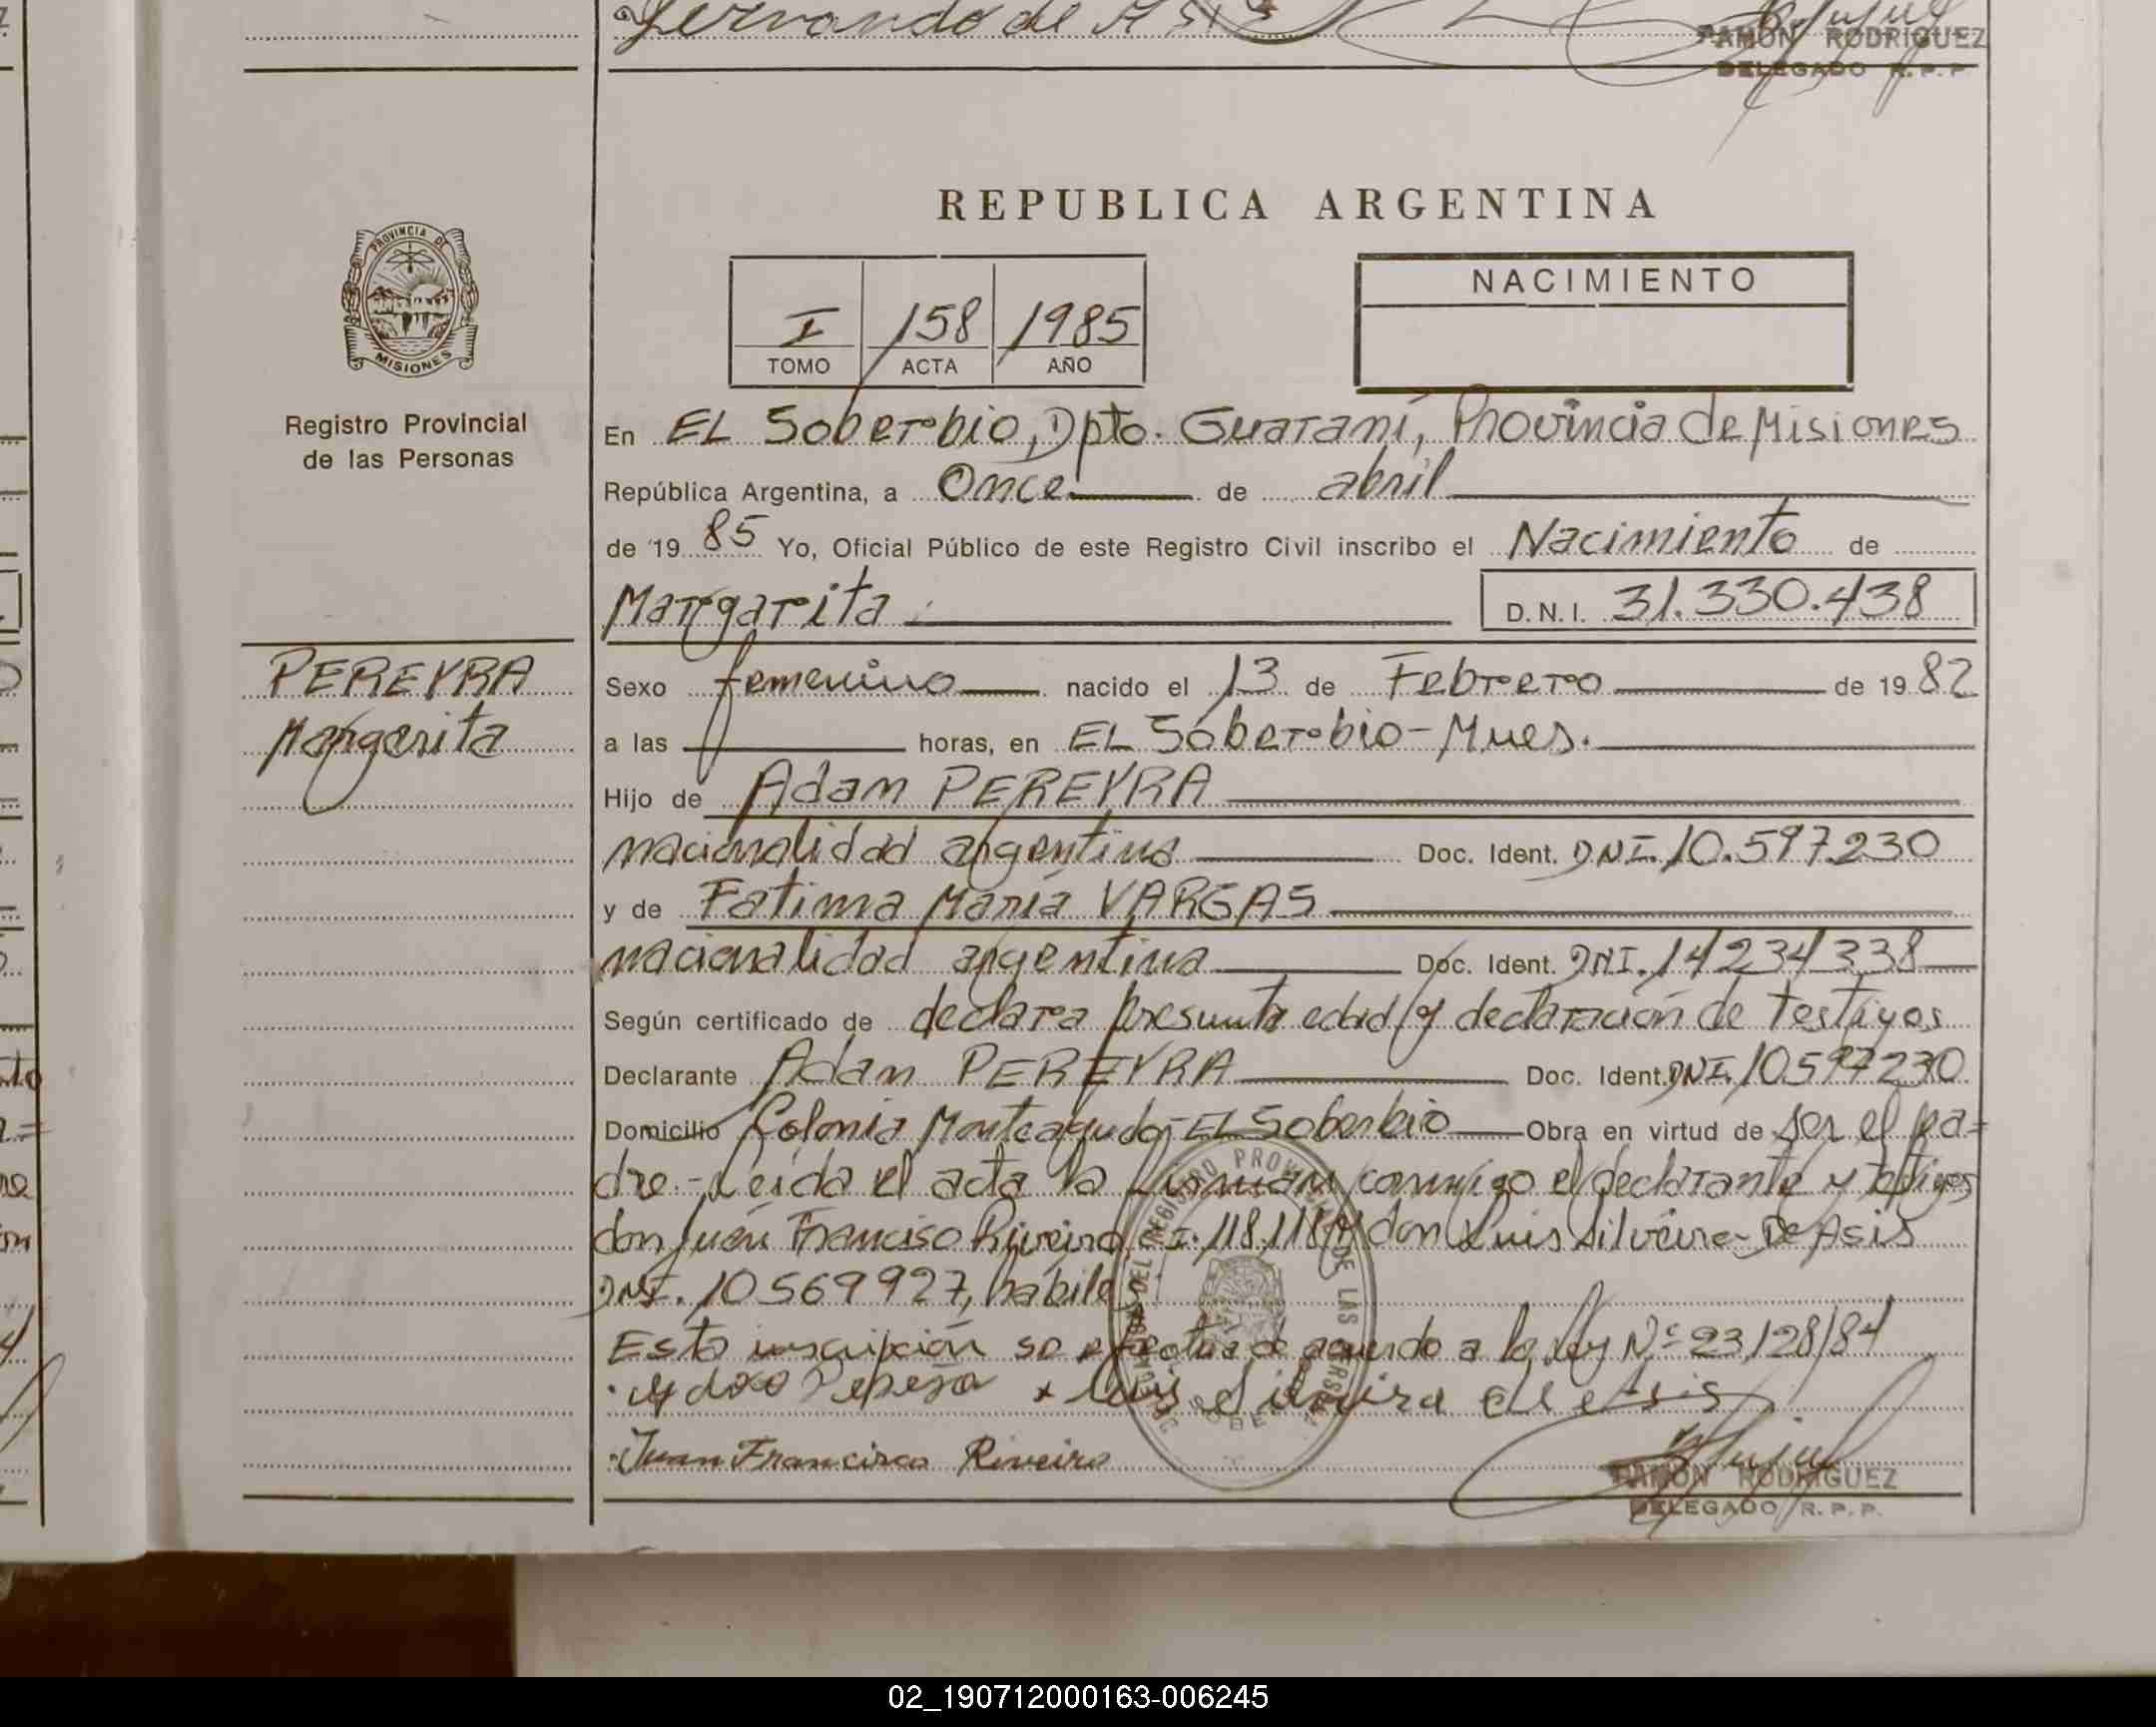 Fernando de Asis
RAMON RODRIGUEZ
DELEGADO R.P.P
PROVINCIA DE
MISIONES
Registro Provincial
de las Personas
PEREYRA
Margarita
REPUBLICA ARGENTINA
I 158 1985
TOMO ACTA AÑO
NACIMIENTO
En EL Soberbio, Dpto. Guaraní, Provincia de Misiones
República Argentina, a Once de abril
de 19 85 Yo, Oficial Público de este Registro Civil inscribo el Nacimiento de
Margarita D.N.I. 31.330.438
Sexo femenino nacido el 13 de Febrero de 19 82
a las horas, en EL Soberbio - Mnes.
Hijo de Adam PEREYRA
nacionalidad argentina Doc. Ident. DNI. 10.597.230
y de Fatima María VARGAS
nacionalidad argentina Doc. Ident. DNI. 14234338
Según certificado de declara presunta edad y declaración de testigos
Declarante Adam PEREYRA Doc. Ident. DNI. 10597230
Domicilio Colonia Monteagudo, EL Soberbio Obra en virtud de ser el pa=
dre.- Leída el acta la firman conmigo el declarante y testigos
don Juan Franciso Riveiro, C.I. 118.118 y don Luis Silveira De Asis
DNI. 10569927, habiles
Esta inscripción se efectua de acuerdo a la ley Nº 23128/84
Luis Silveira de Asis
Juan Francisco Riveiro
RAMON RODRIGUEZ
DELEGADO R.P.P.
02_190712000163-006245